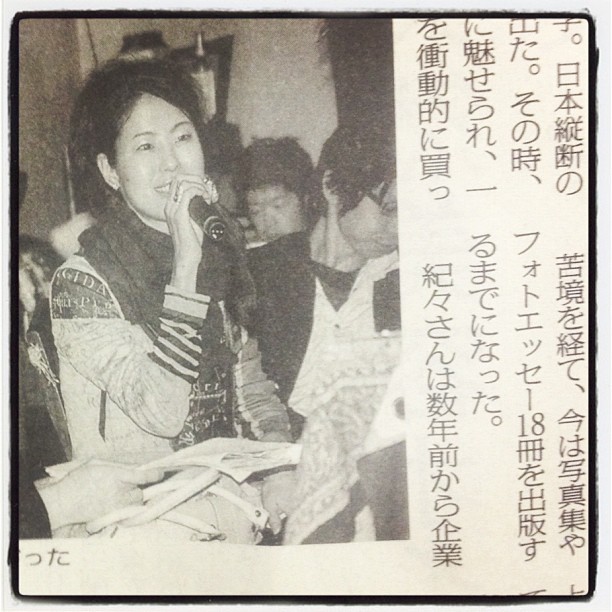 子。日本縦断の
出た。その時、
に魅せられ、一
を衝動的に買っ
苦境を経て、今は写真集や
フォトエッセー18冊を出版す
るまでになった。
紀々さんは数年前から企業
った